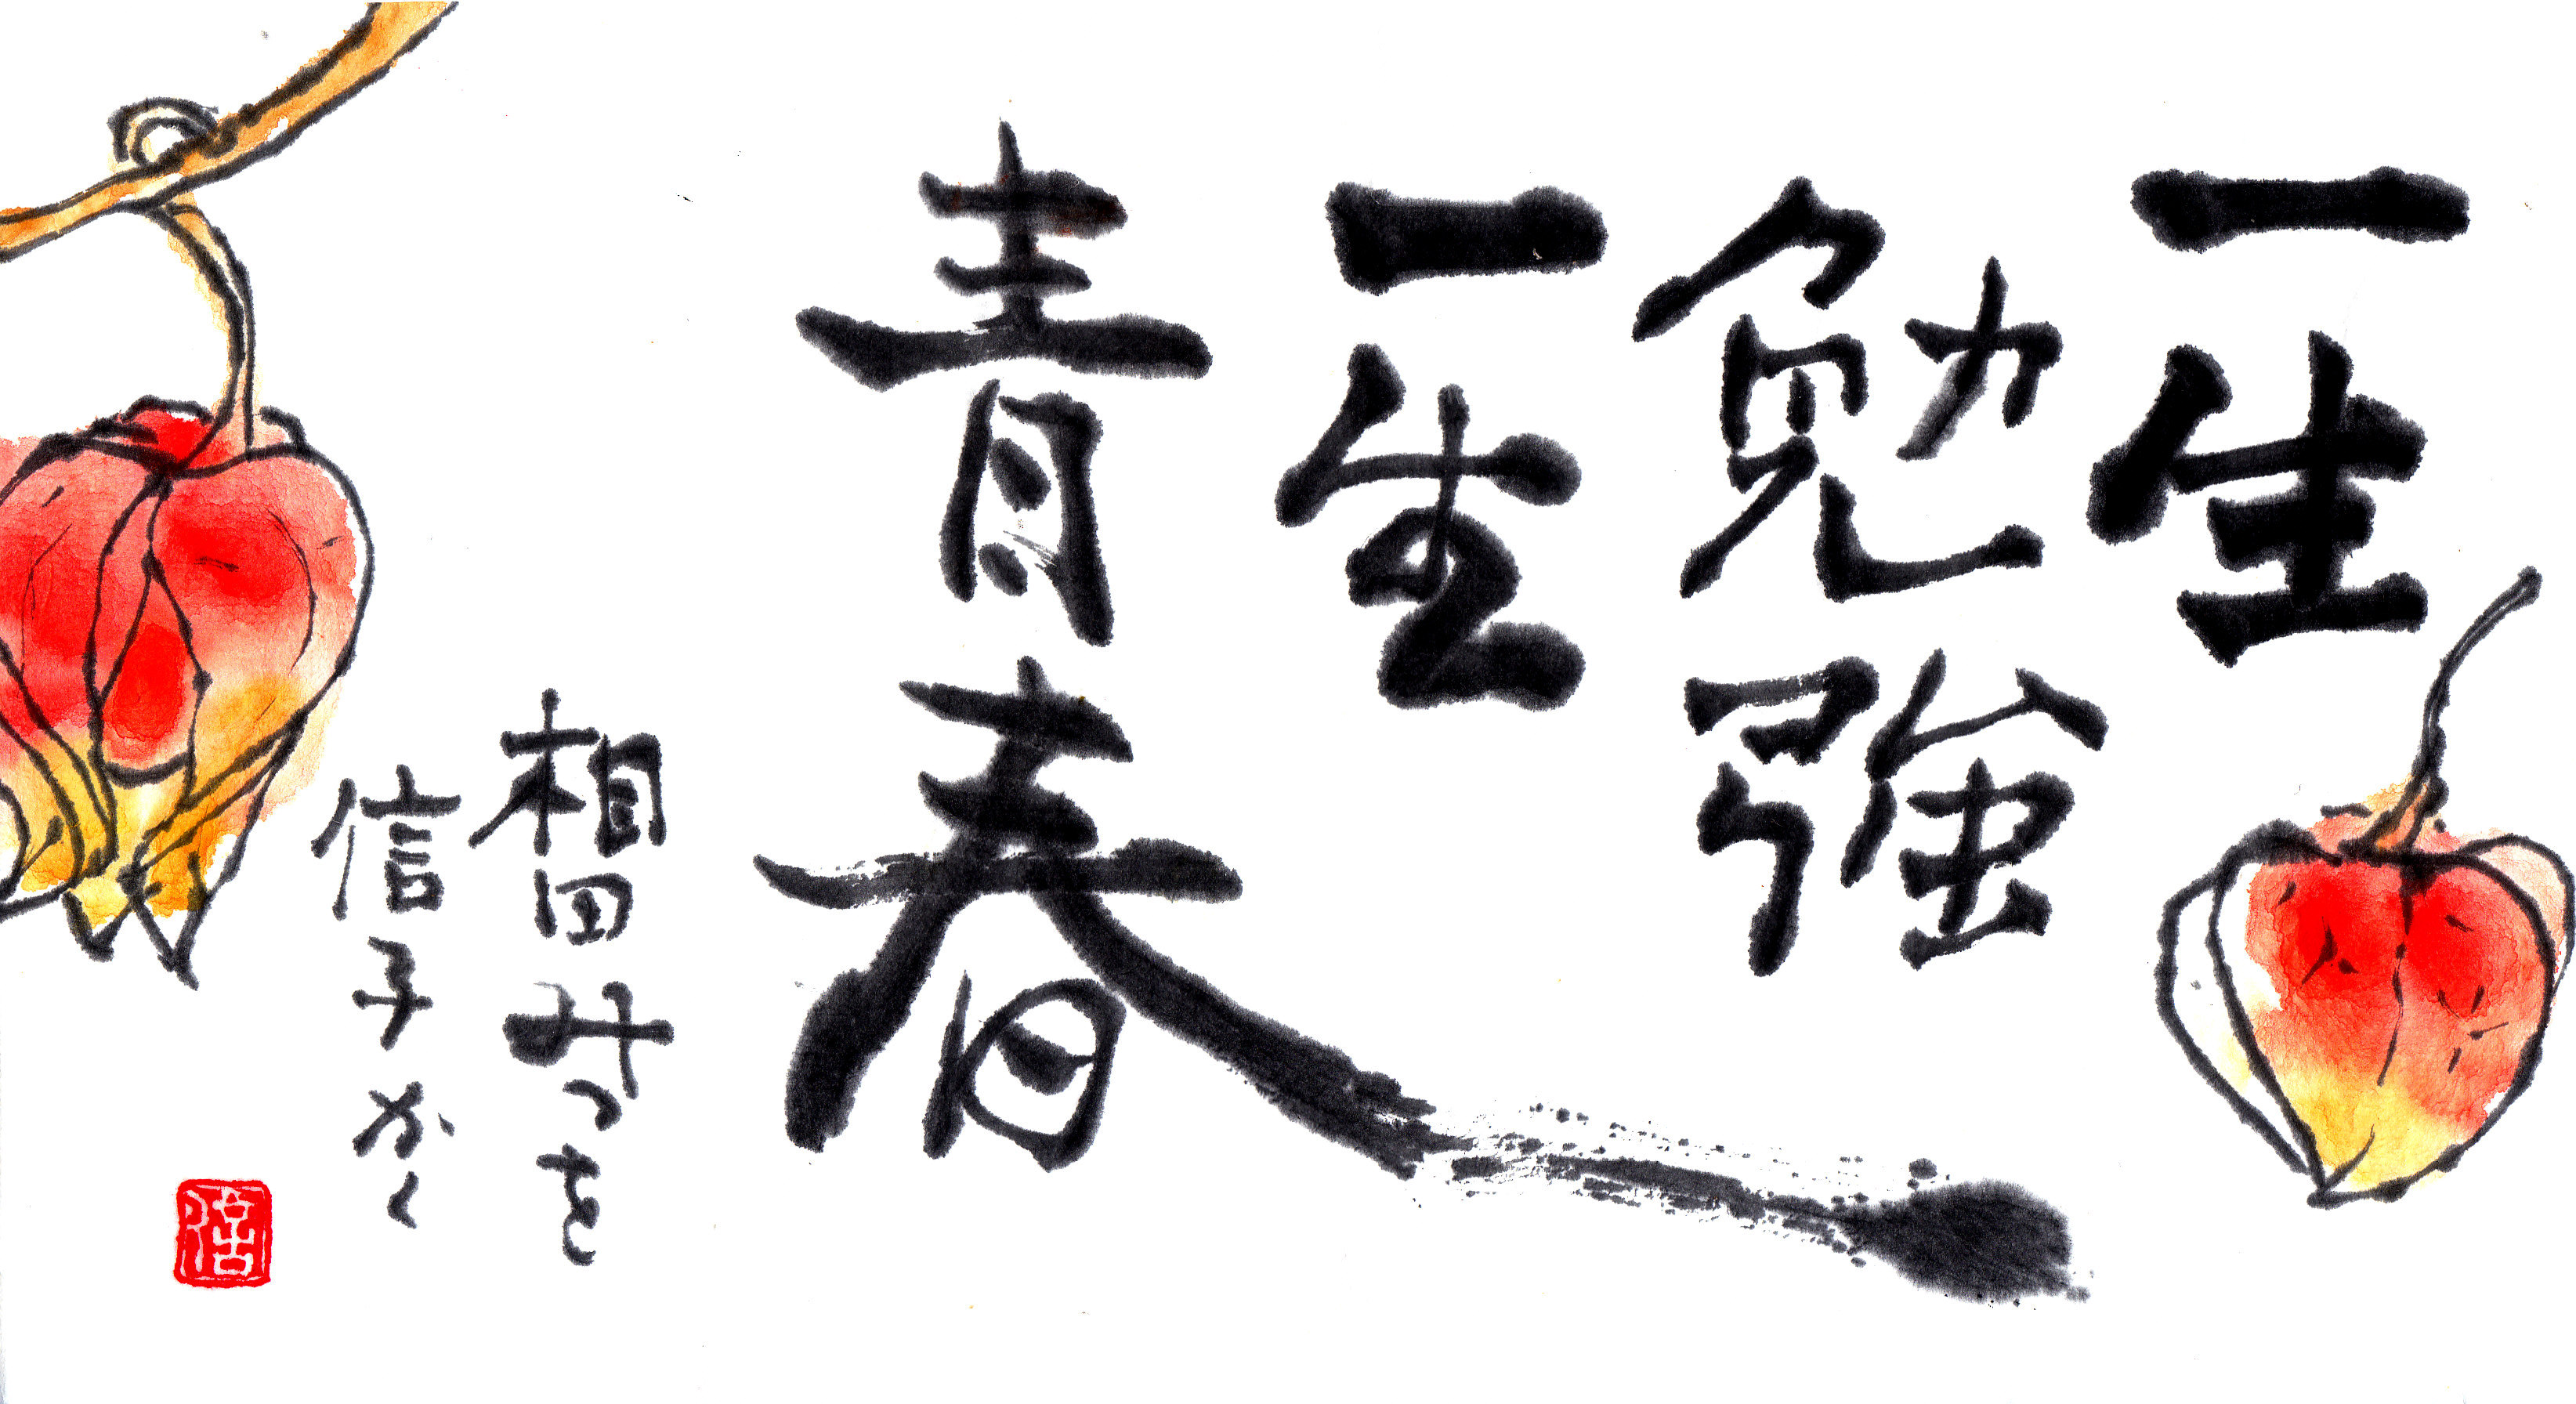 一生
勉強
一生
青春
相田みつを
信子かく
信